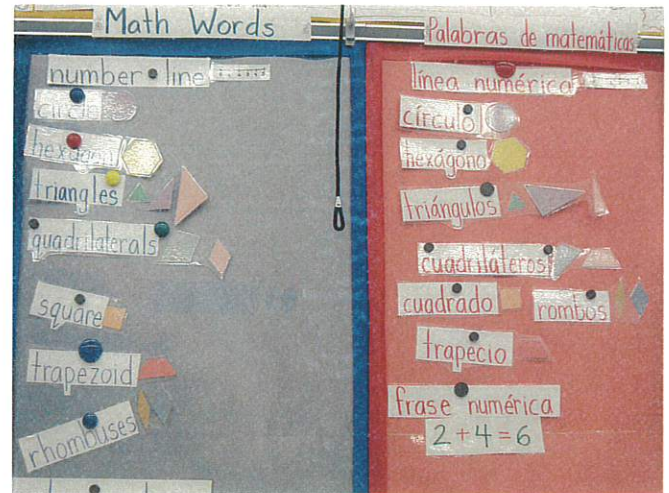 Math Words
number line
circle
hexagon
triangles
quadrilaterals
square
trapezoid
rhombuses
Palabras de matemáticas
línea numérica
círculo
hexágono
triángulos
cuadriláteros
cuadrado
rombos
trapecio
frase numérica
2+4=6